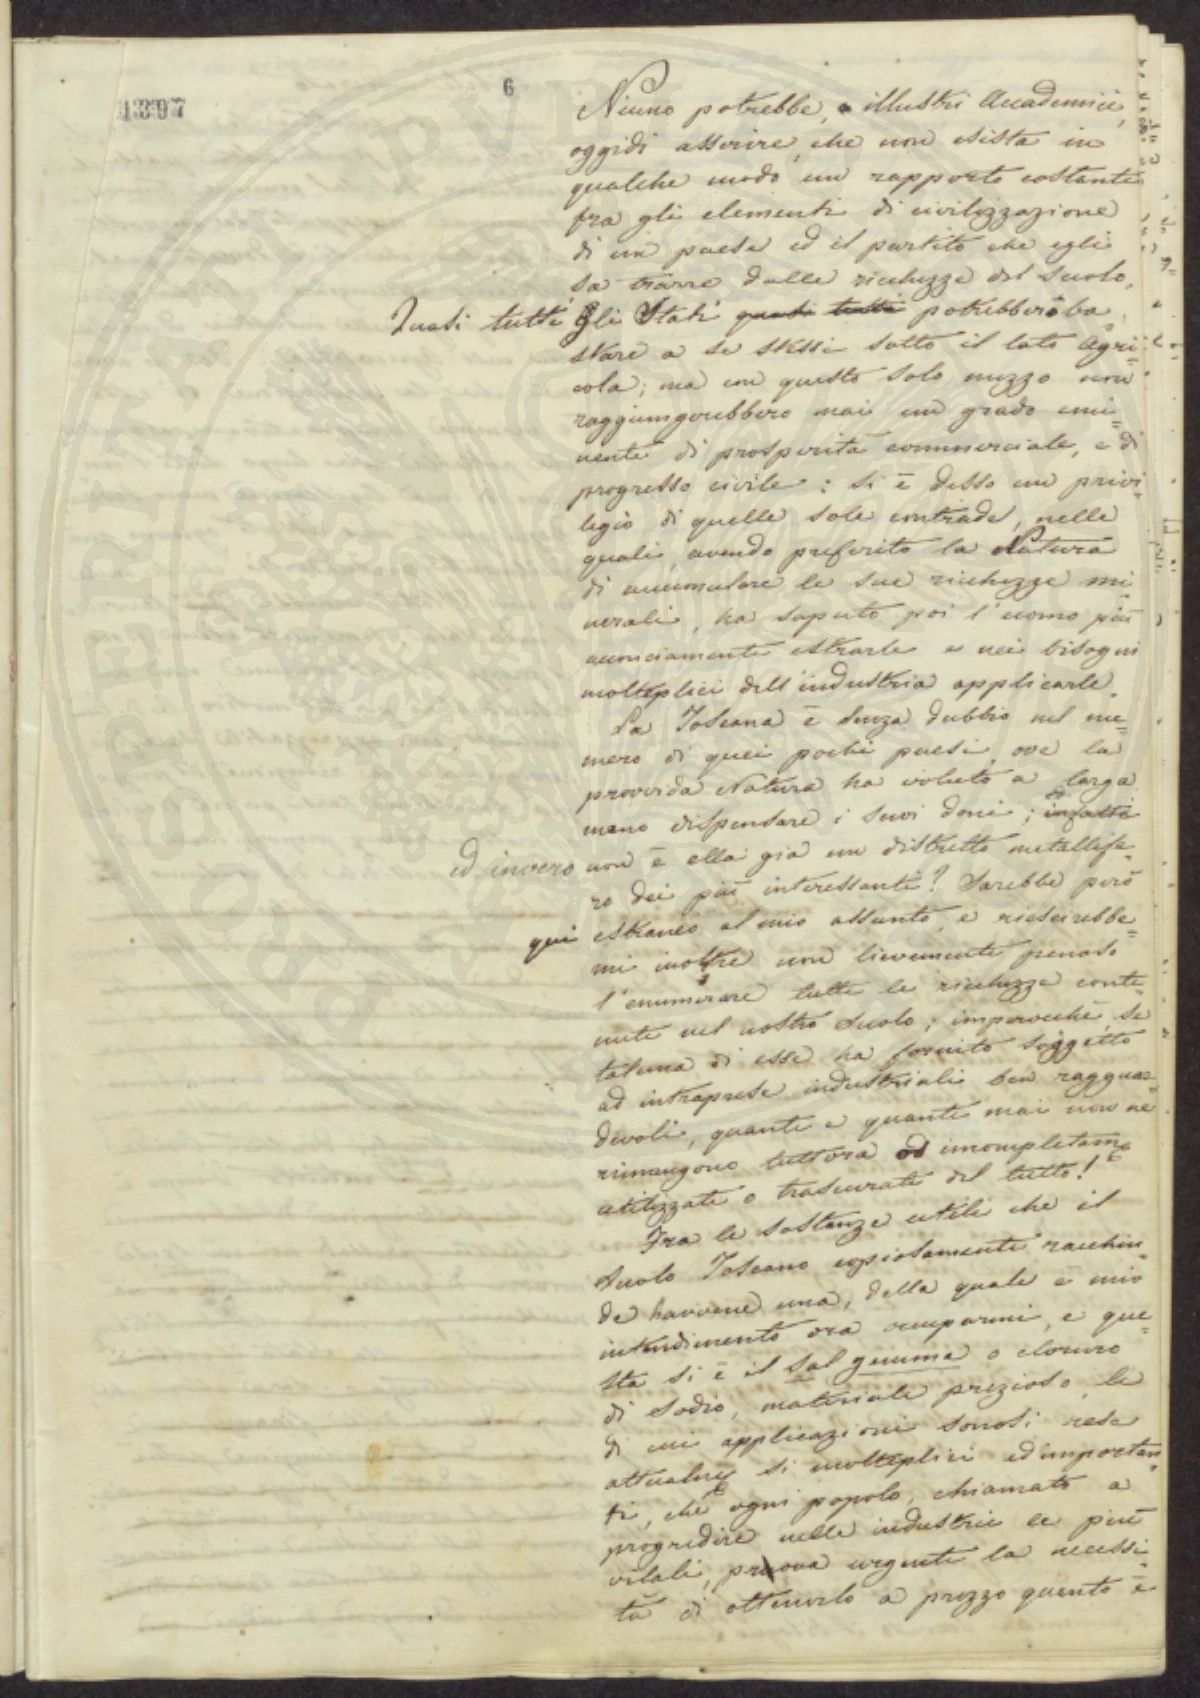 1397
6
Niuno potrebbe, o illustri Accademici,
oggidì asserire, che non esista in
qualche modo un rapporto costante
fra gli elementi di civilizzazione
di un paese ed il partito che egli
sa trarre dalle ricchezze del suolo.
Quasi tutti gli Stati quasi tutti potrebbero ba=
stare a se stessi sotto il lato agri=
cola; ma con questo solo mezzo non
raggiungerebbero mai un grado emi=
nente di prosperità commerciale, e di
progresso civile: si è desso un privi=
legio di quelle sole contrade, nelle
quali, avendo preferito la Natura
di accumulare le sue ricchezze mi=
nerali, ha saputo poi l'uomo più
acconciamente estrarle e nei bisogni
molteplici dell'industria applicarle.
La Toscana è senza dubbio nel nu=
mero di quei pochi paesi, ove la
provvida Natura ha voluto a larga
mano dispensare i suoi doni; infatti
ed invero non è ella già un distretto metallife=
ro dei più interessanti? Sarebbe però
qui estraneo al mio assunto, e riescirebbe=
mi inoltre non lievemente penoso
l'enumerare tutte le ricchezze conte=
nute nel nostro suolo; imperocchè, se
taluna di esse ha fornito soggetto
ad intraprese industriali ben ragguar=
devoli, quante e quante mai non ne
rimangono tuttora od incompletamte
utilizzate o trascurate del tutto!
Fra le sostanze utili che il
suolo Toscano copiosamente racchiu=
de havvene una, della quale è mio
intendimento ora occuparmi, e que=
sta si è il sal gemma o cloruro
di sodio, materiale prezioso, le
di cui applicazioni sonosi rese
attualmte si molteplici ed importan=
ti, che ogni popolo, chiamato a
progredire nelle industrie le più
vitali, pruova urgente la necessi=
tà di ottenerlo a prezzo quanto è